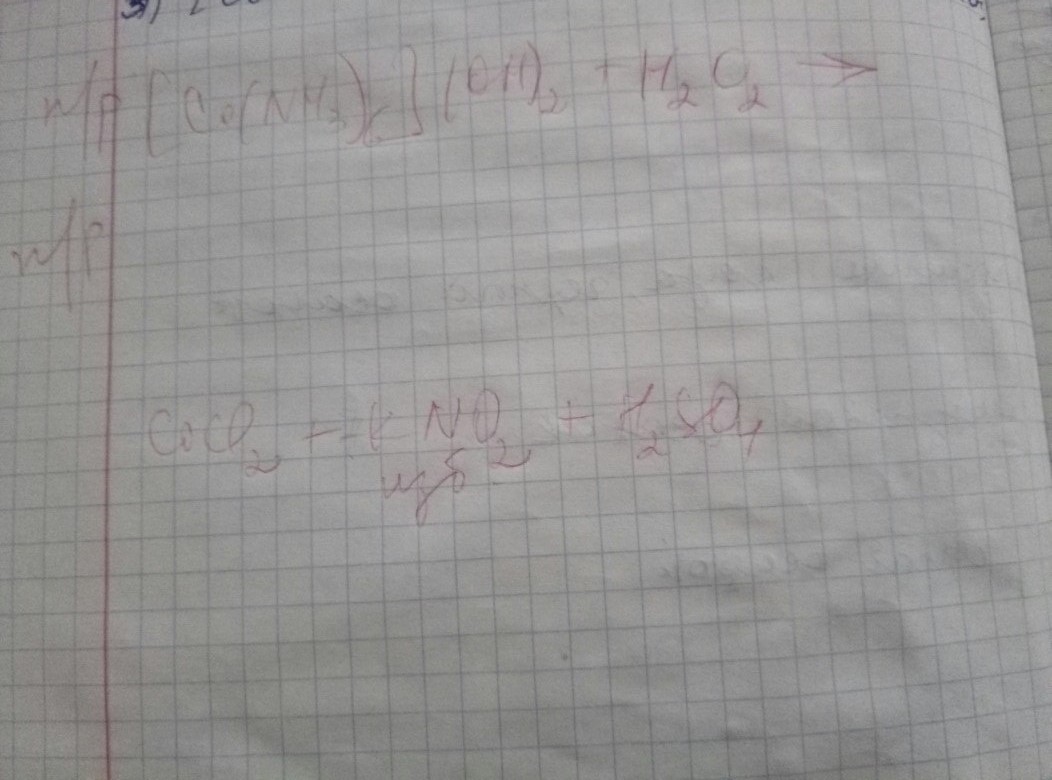 н/р [Co(NH₃)₆](OH)₂ + H₂O₂ →
н/р
CoCl₂ + KNO₂ + H₂SO₄
изб